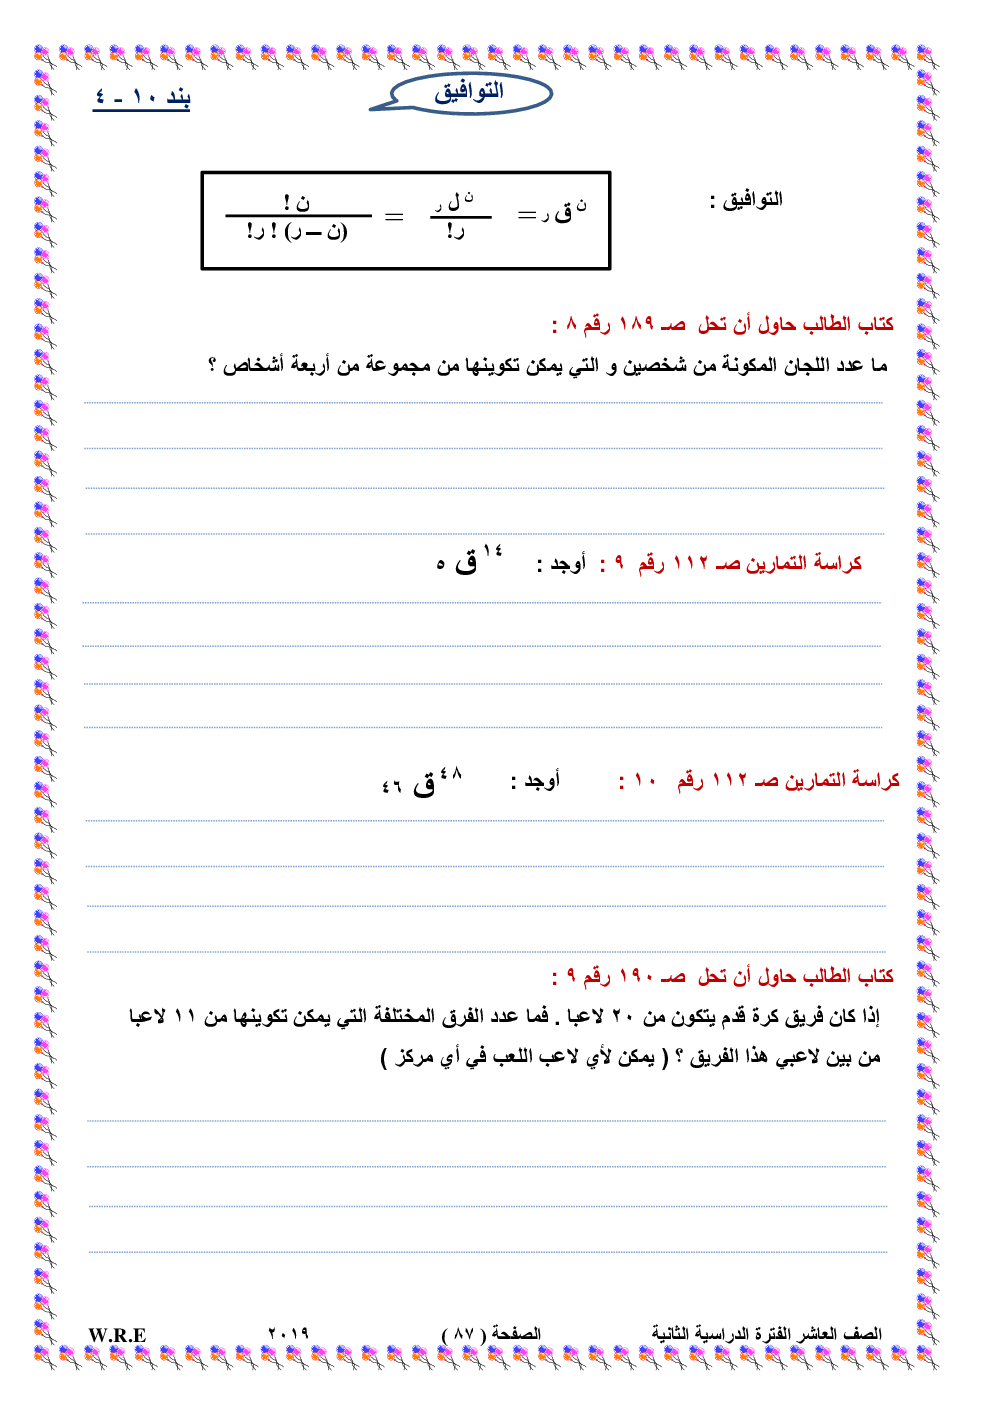 التوافيق
بند ١٠ - ٤
التوافيق :
ن ق ر = ن ل ر / ر! = ن ! / (ن – ر) ! ر!
كتاب الطالب حاول أن تحل صـ ١٨٩ رقم ٨ :
ما عدد اللجان المكونة من شخصين و التي يمكن تكوينها من مجموعة من أربعة أشخاص ؟
كراسة التمارين صـ ١١٢ رقم ٩ : أوجد : ١٤ ق ٥
كراسة التمارين صـ ١١٢ رقم ١٠ : أوجد : ٤٨ ق ٤٦
كتاب الطالب حاول أن تحل صـ ١٩٠ رقم ٩ :
إذا كان فريق كرة قدم يتكون من ٢٠ لاعبا . فما عدد الفرق المختلفة التي يمكن تكوينها من ١١ لاعبا
من بين لاعبي هذا الفريق ؟ ( يمكن لأي لاعب اللعب في أي مركز )
الصف العاشر الفترة الدراسية الثانية الصفحة ( ٨٧ ) ٢٠١٩ W.R.E